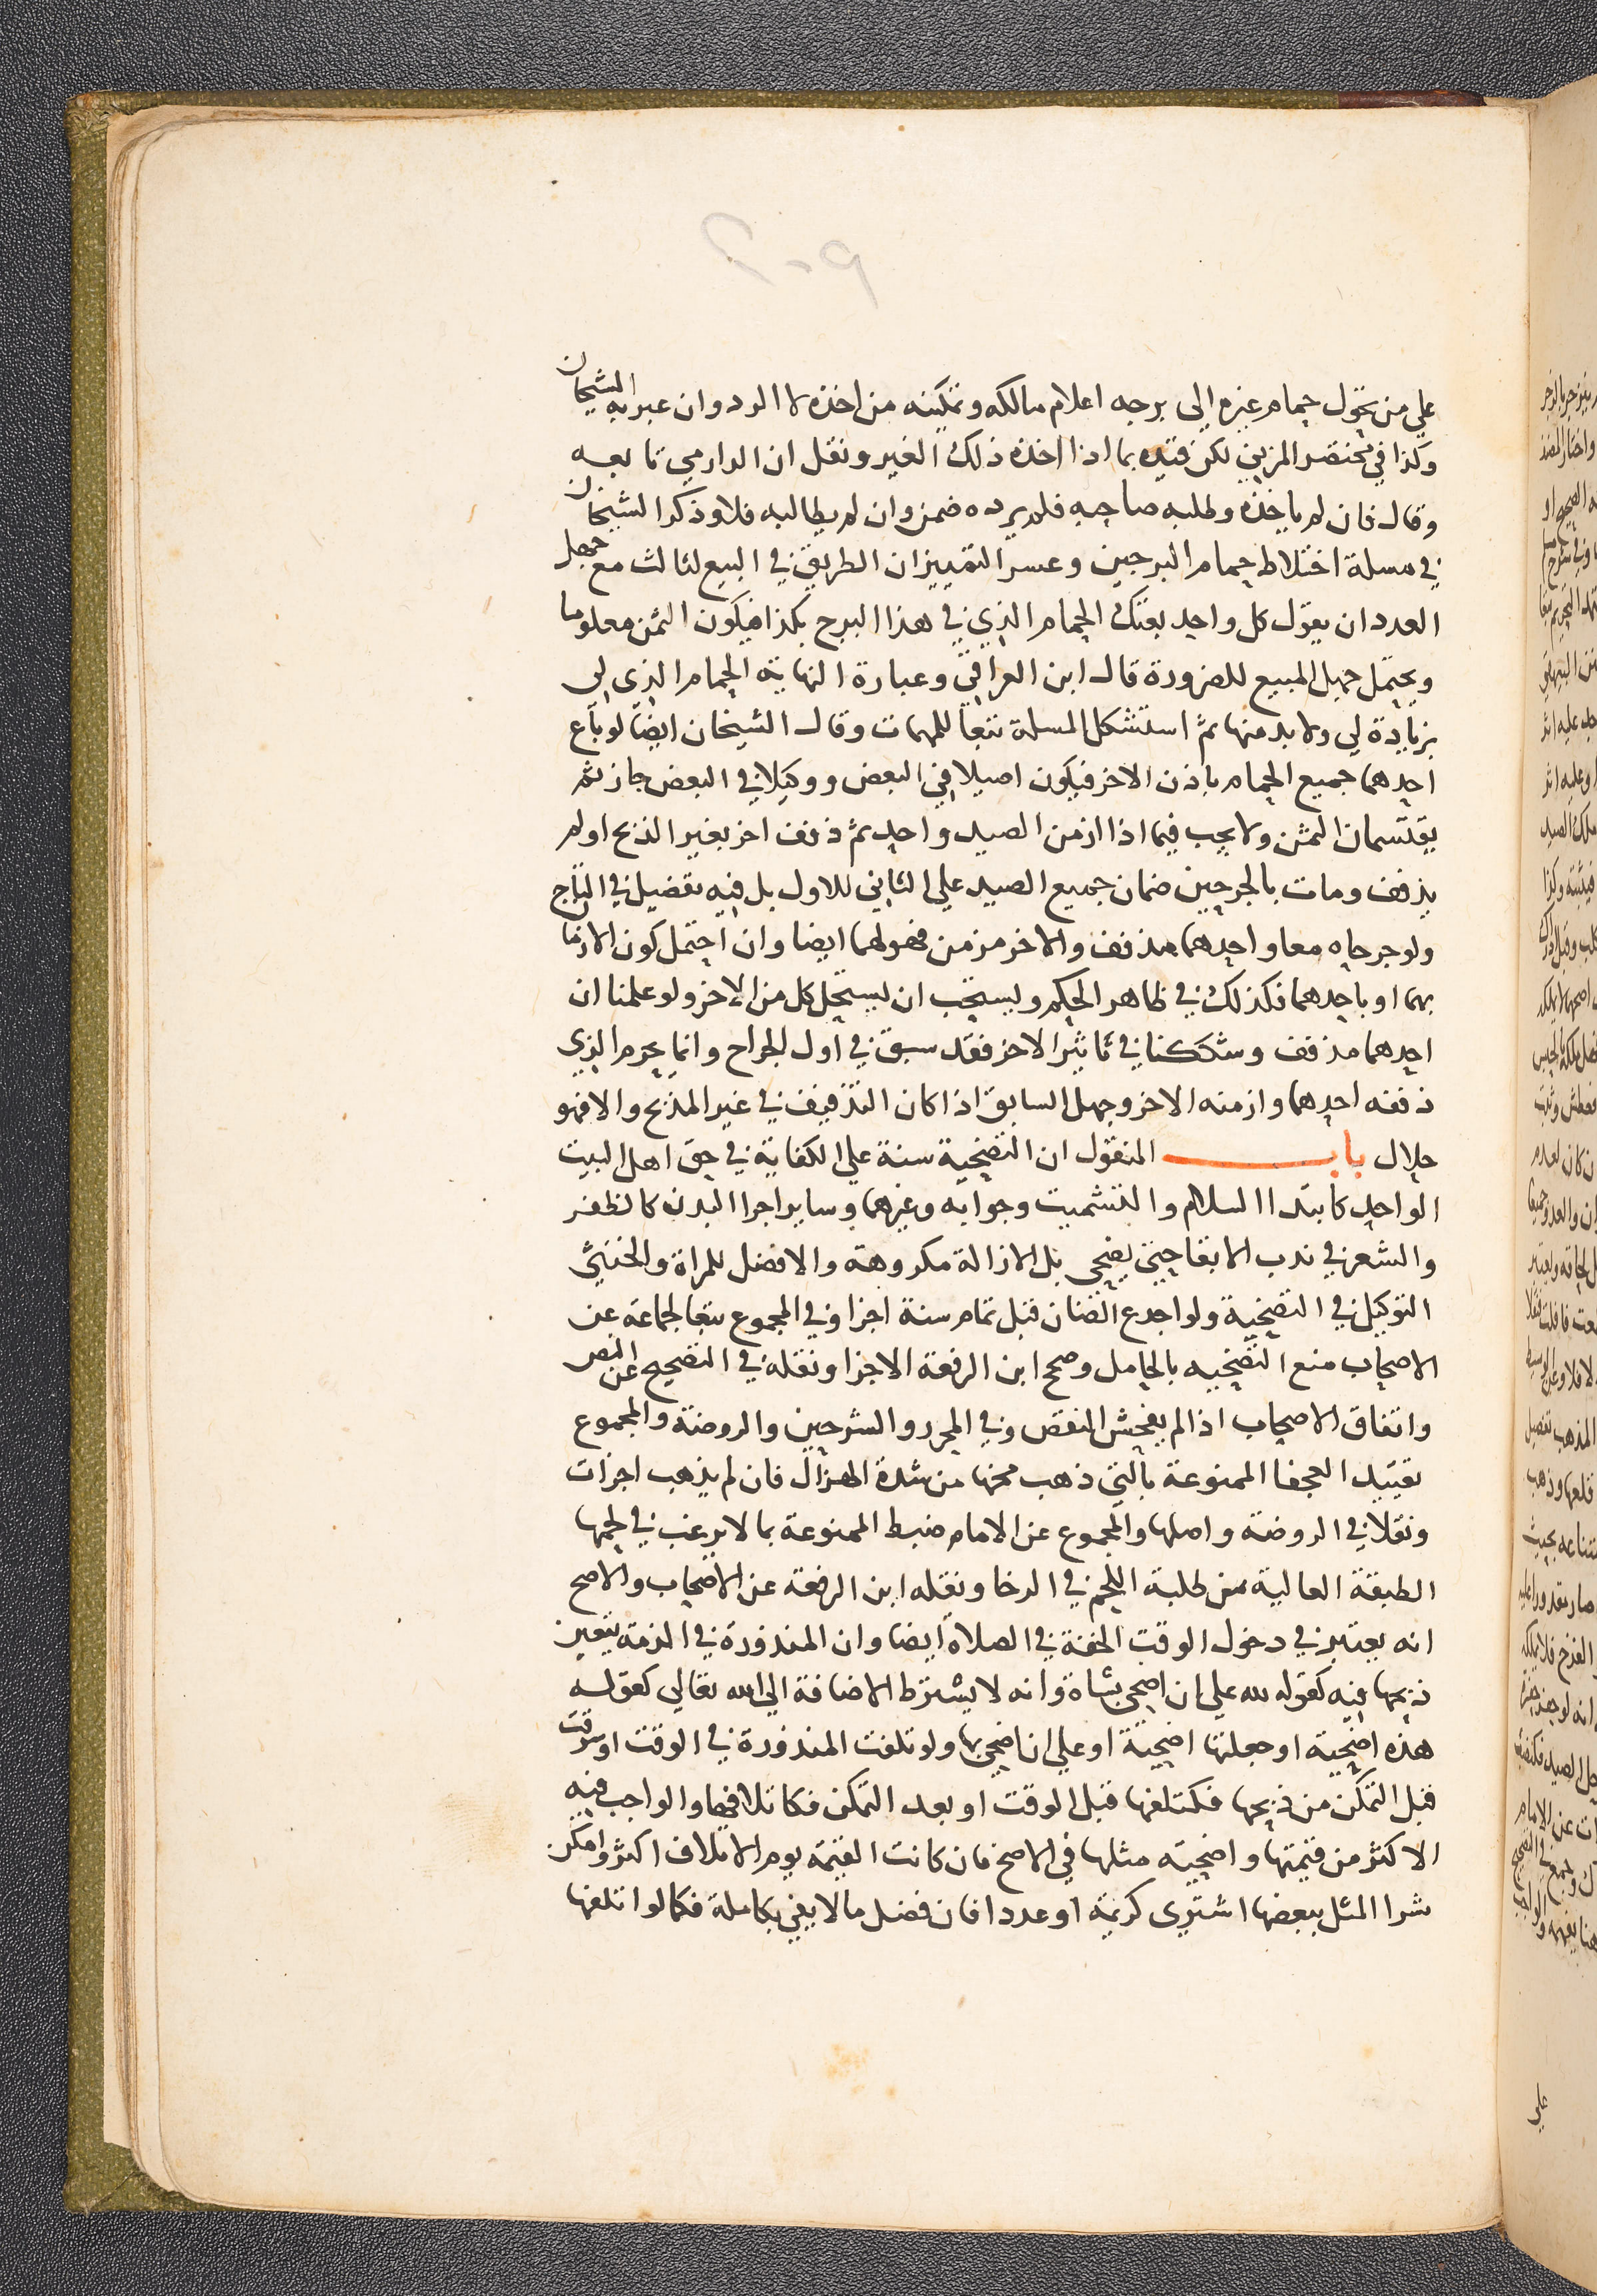 علي من تحول حمام غيره الى برجه اعلام مالكه وتمكينه من اخذه لا الرد وان عبر به الشيخان
وكذا في مختصر المزني لكن قيده بما اذا اخذه ذلك الغير ونقل ان الدارمي تابعه
وقال فان لم ياخذه وطلبه صاحبه فلم يرده ضمن وان لم يطالبه فلا وذكر الشيخان
في مسلة اختلاط حمام البرجين وعسر التمييز ان الطريق في البيع لثالث مع جهل
العدد ان يقول كل واحد بعتك الحمام الذي في هذا البرج بكذا فيكون الثمن معلوما
ويحتمل جهل المبيع للضرورة قال ابن العراقي وعبارة النهاية الحمام الذي لي
بزيادة لي ولا بد منها ثم استشكل المسلة تبعا للمهمات وقال الشيخان ايضا لو باع
احدهما جميع الحمام باذن الاخر فيكون اصيلا في البعض ووكيلا في البعض جاز ثم
يقتسمان الثمن ولا يجب فيما اذا ازمن الصيد واحد ثم ذفف اخر بغير الذبح او لم
يذفف ومات بالجرحين ضمان جميع الصيد علي الثاني للاول بل فيه تفصيل في التاج
ولو جرحاه معا واحدهما مذفف والاخر مزمن فهو لهما ايضا وان احتمل كون الازمان
بهما او باحدهما فكذلك في ظاهر الحكم ويستحب ان يستحل كل من الاخر ولو علمنا ان
احدهما مذفف وشككنا في تاثير الاخر فقد سبق في اول الجراح وانما يحرم الذي
ذففه احدهما وازمنه الاخر وجهل السابق اذا كان التذفيف في غير المذبح والا فهو
حلال باب المنقول ان التضحية سنة علي الكفاية في حق اهل البيت
الواحد كابتدا السلام والتشميت وجوابه وغيرهما وساير اجزا البدن كالظفر
والشعر في ندب الابقا حتى يضحي بل الازالة مكروهة والافضل للمراة والخنثى
التوكيل في التضحية ولو اجدع الضان قبل تمام سنة اجزا وفي المجموع تبعا لجماعة عن
الاصحاب منع التضحية بالحامل وصحح ابن الرفعة الاجزا ونقله في التصحيح عن النص
واتفاق الاصحاب اذا لم يفحش النقص وفي المحرر والشرحين والروضة والمجموع
تقييد العجفا الممنوعة بالتي ذهب مخها من شدة الهزال فان لم يذهب اجزات
ونقلا في الروضة واصلها والمجموع عن الامام ضبط الممنوعة بما لا يرغب في لحمها
الطبقة العالية من طلبة اللحم في الرخا ونقله ابن الرفعة عن الاصحاب والاصح
انه يعتبر في دخول الوقت الخفة في الصلاة ايضا وان المنذورة في الذمة يتعين
ذبحها فيه كقوله لله علي ان اضحي بشاة وانه لا يشترط الاضافة الى الله تعالي كقوله
هذه اضحية او جعلتها اضحية او علي ان اضحي بها ولو تلفت المنذورة في الوقت او سرقت
قبل التمكن من ذبحها فكتلفها قبل الوقت او بعد التمكن فكاتلافها والواجب فيه
الاكثر من قيمتها واضحية مثلها في الاصح فان كانت القيمة يوم الاتلاف اكثر وامكن
شرا المثل ببعضها اشترى كريمة او عددا فان فضل مالا يفي بكاملة فكما لو اتلفها
علي